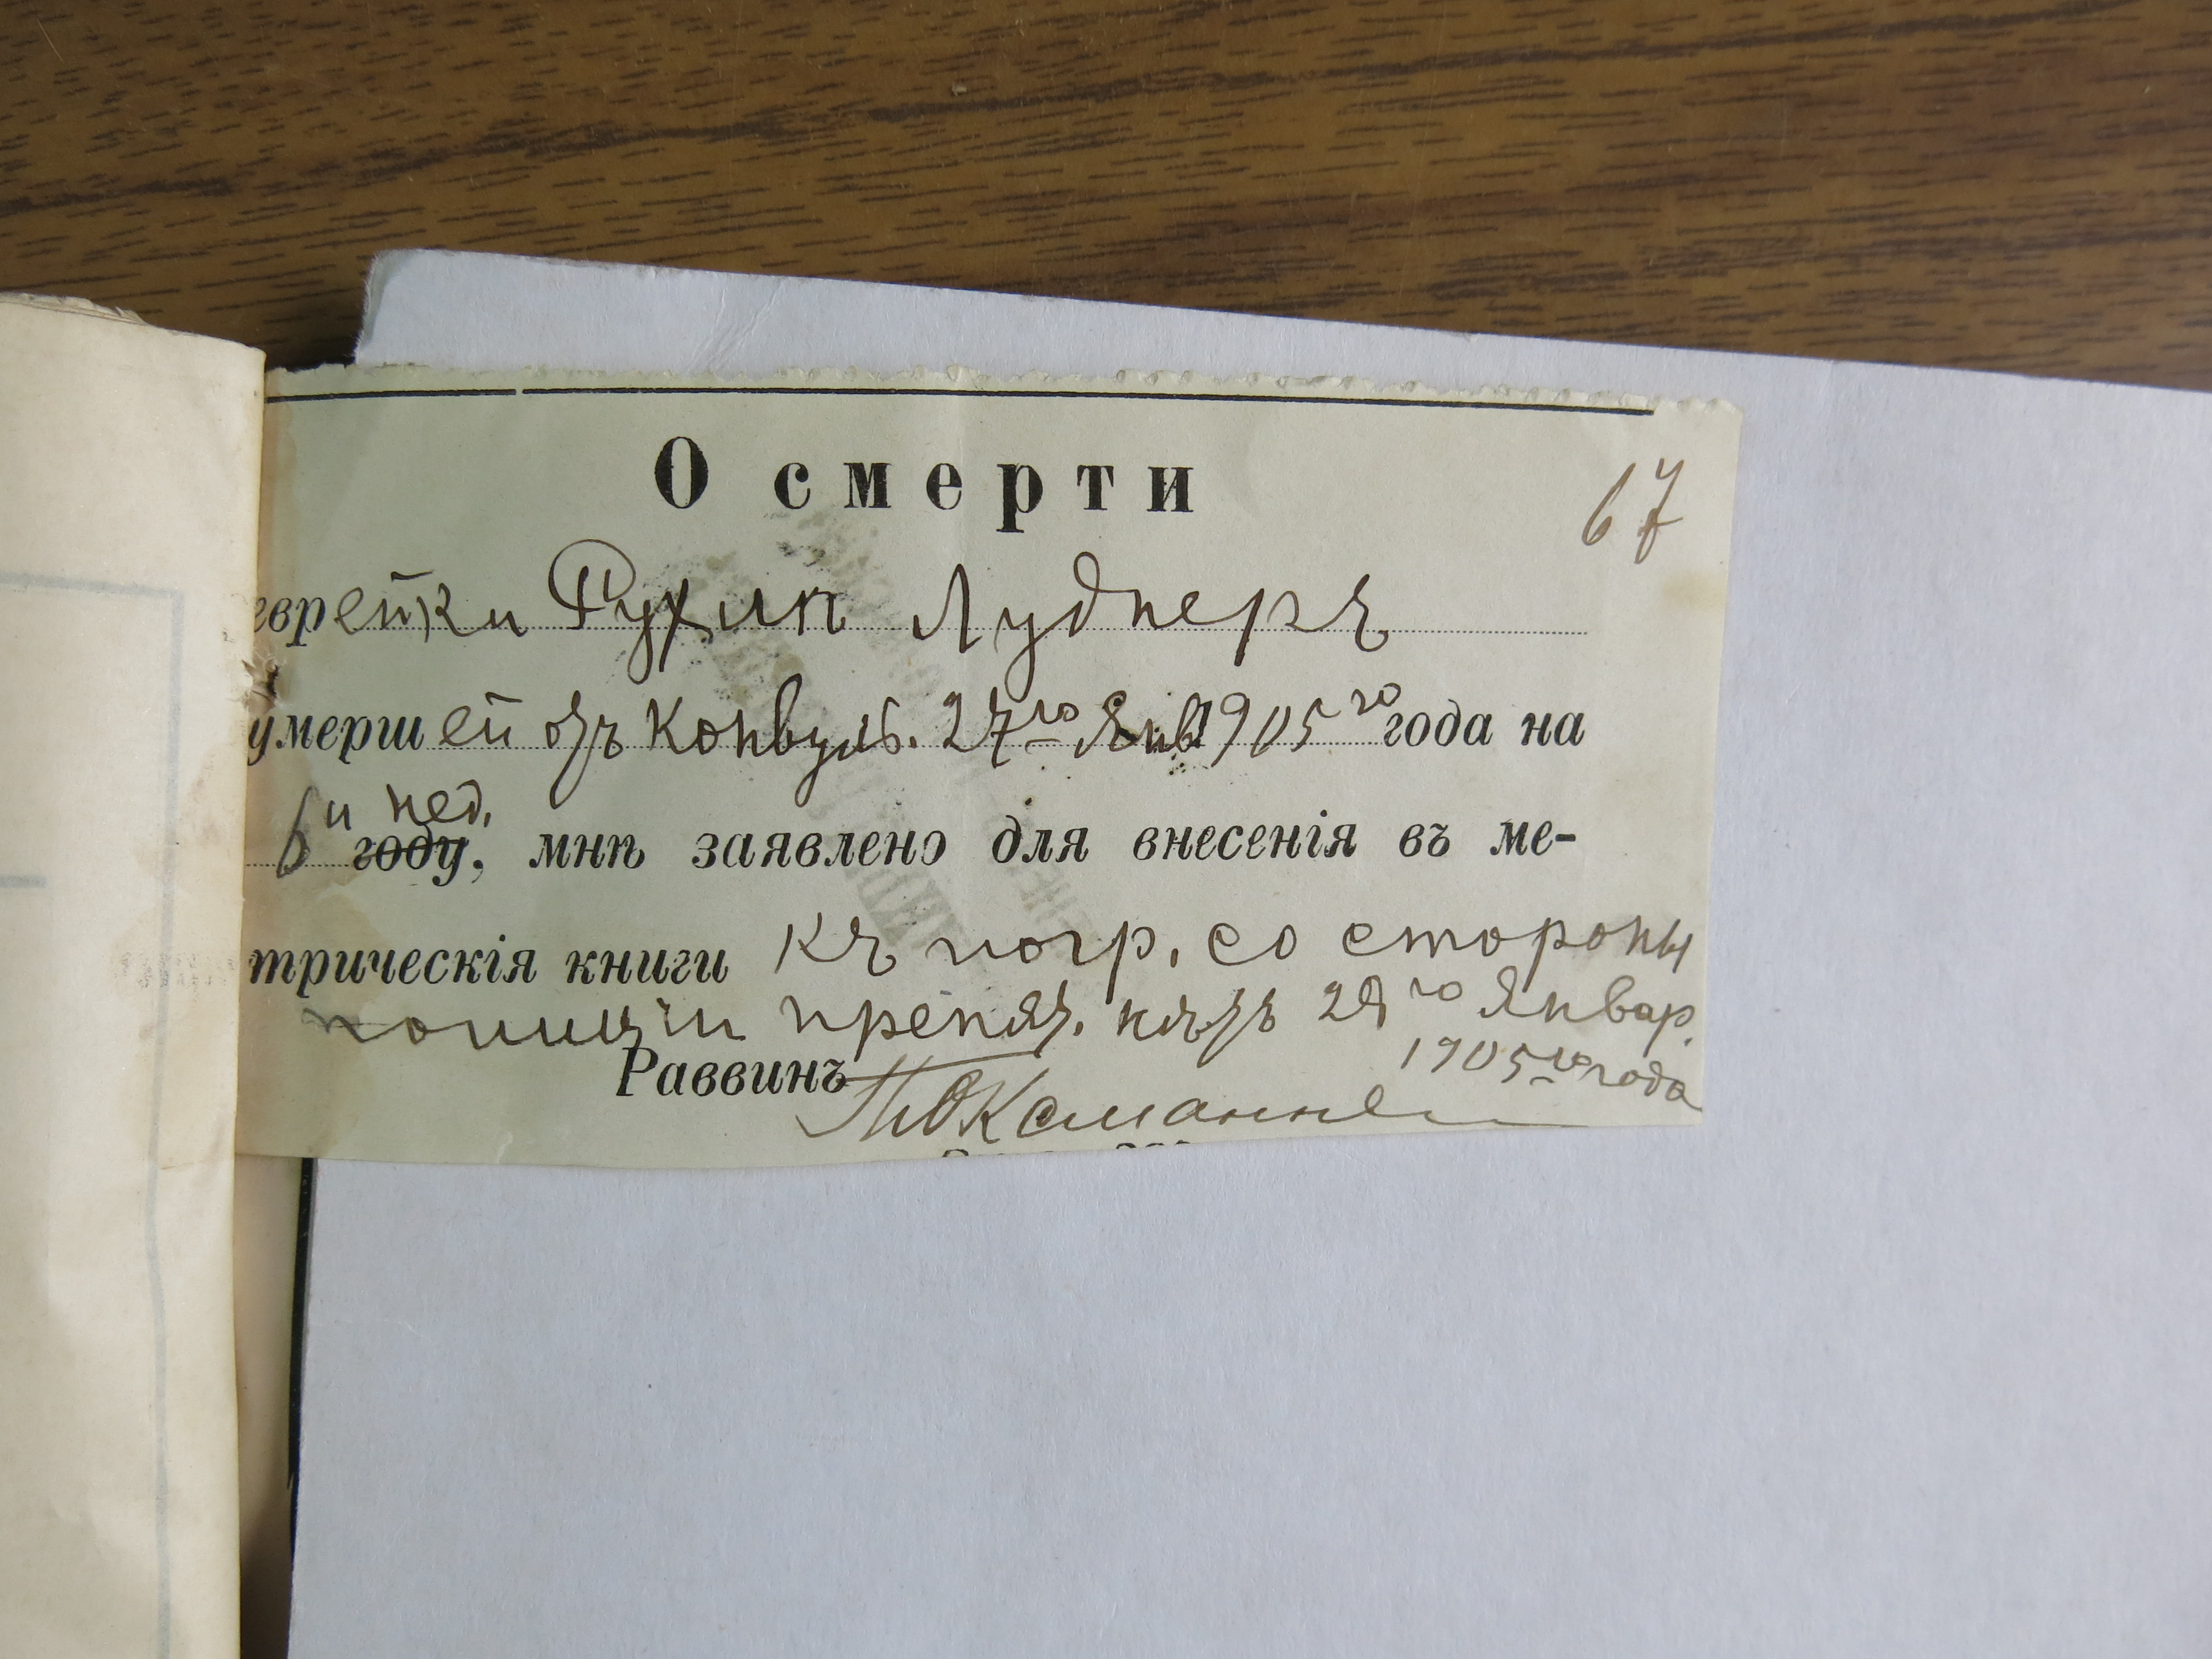 О смерти
67
еврейки Рухли Луднеръ
умершей отъ конвульс. 27го Янв 1905го года на
6и нед.
году, мнѣ заявлено для внесенія въ ме-
трическія книги къ погр. со стороны
полиціи препят. нѣтъ 28го Январ.
1905го года
Раввинъ